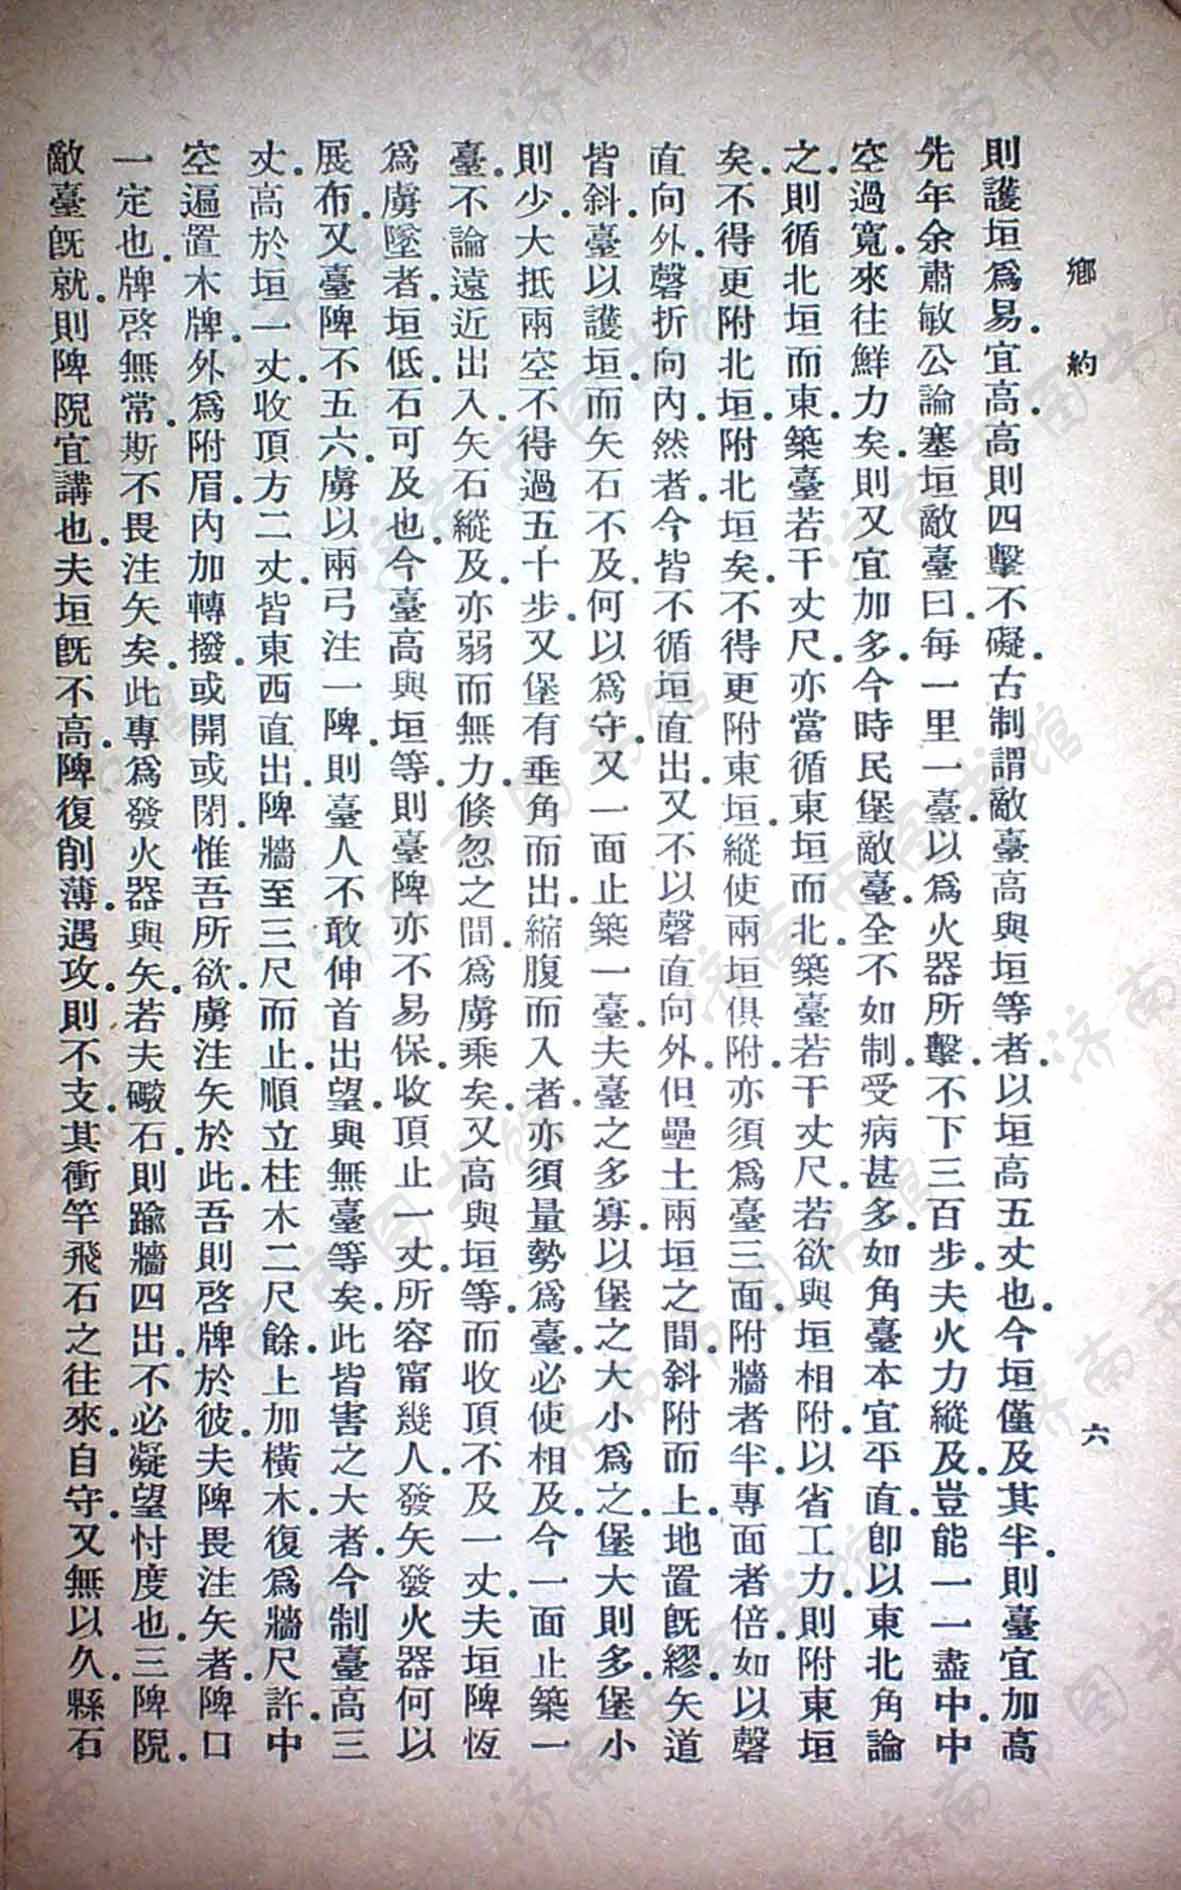 鄉約
六
則護垣爲易。宜高。高則四擊不礙。古制謂敵臺高與垣等者。以垣高五丈也。今垣僅及其半。則臺宜加高
先年余肅敏公論塞垣敵臺曰。每一里一臺。以爲火器所擊。不下三百步。夫火力縱及。豈能一一盡中。中
空過寬。來往鮮力矣。則又宜加多。今時民堡敵臺。全不如制。受病甚多。如角臺本宜平直。卽以東北角論
之。則循北垣而東。築臺若干丈尺。亦當循東垣而北。築臺若干丈尺。若欲與垣相附。以省工力。則附東垣
矣。不得更附北垣。附北垣矣。不得更附東垣。縱使兩垣俱附。亦須爲臺三面。附牆者半。專面者倍。如以磬
直向外。磬折向內。然者。今皆不循垣直出。又不以磬直向外。但壘土兩垣之間。斜附而上。地置旣繆。矢道
皆斜。臺以護垣。而矢石不及。何以爲守。又一面止築一臺。夫臺之多寡。以堡之大小爲之。堡大則多。堡小
則少。大抵兩空不得過五十步。又堡有垂角而出。縮腹而入者。亦須量勢爲臺。必使相及。今一面止築一
臺。不論遠近出入。矢石縱及。亦弱而無力。倏忽之間。爲虜乘矣。又高與垣等。而收頂不及一丈。夫垣陴恆
爲虜墜者。垣低。石可及也。今臺高與垣等。則臺陴亦不易保。收頂止一丈。所容甯幾人。發矢發火器。何以
展布。又臺陴不五六。虜以兩弓注一陴。則臺人不敢伸首出望。與無臺等矣。此皆害之大者。今制臺高三
丈。高於垣一丈。收頂方二丈。皆東西直出。陴牆至三尺而止。順立柱木二尺餘。上加橫木。復爲牆尺許。中
空遍置木牌。外爲附眉。內加轉撥。或開或閉。惟吾所欲。虜注矢於此。吾則啓牌於彼。夫陴畏注矢者。陴口
一定也。牌啓無常。斯不畏注矢矣。此專爲發火器與矢。若夫礮石。則踰牆四出。不必凝望忖度也。三陴陧。
敵臺旣就。則陴陧宜講也。夫垣旣不高。陴復削薄。遇攻則不支。其衝竿飛石之往來。自守。又無以久。縣石